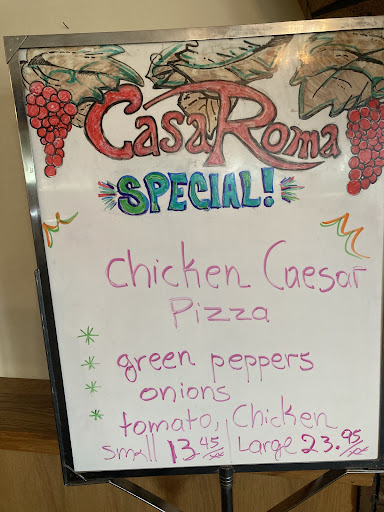 Casa Roma
SPECIAL!
Chicken Caesar
Pizza
* green peppers
* onions
* tomato, Chicken
Small 13.45 | Large 23.95